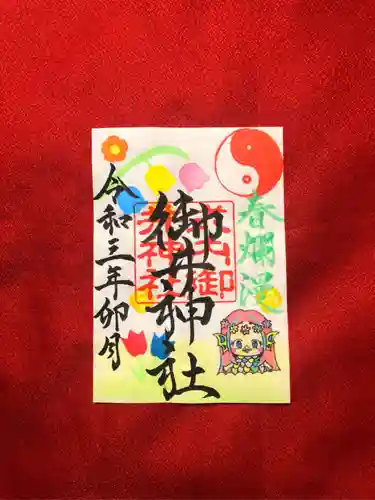 春爛漫
御井神社
令和三年卯月
神社